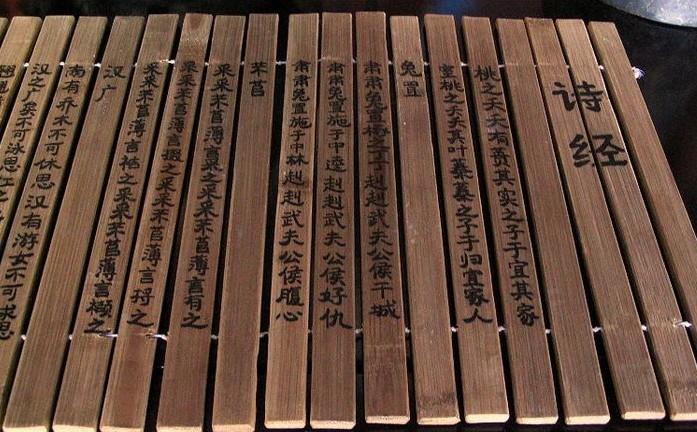 诗经
桃之夭夭有蕡其实之子于宜其家
室桃之夭夭其叶蓁蓁之子于归宜家人
兔罝
肃肃兔罝椓之丁丁赳赳武夫公侯干城
肃肃兔罝施于中逵赳赳武夫公侯好仇
肃肃兔罝施于中林赳赳武夫公侯腹心
芣苢
采采芣苢薄言采之采采芣苢薄言有之
采采芣苢薄言掇之采采芣苢薄言捋之
采采芣苢薄言袺之采采芣苢薄言襭之
汉广
南有乔木不可休思汉有游女不可求思
汉之广矣不可泳思江之